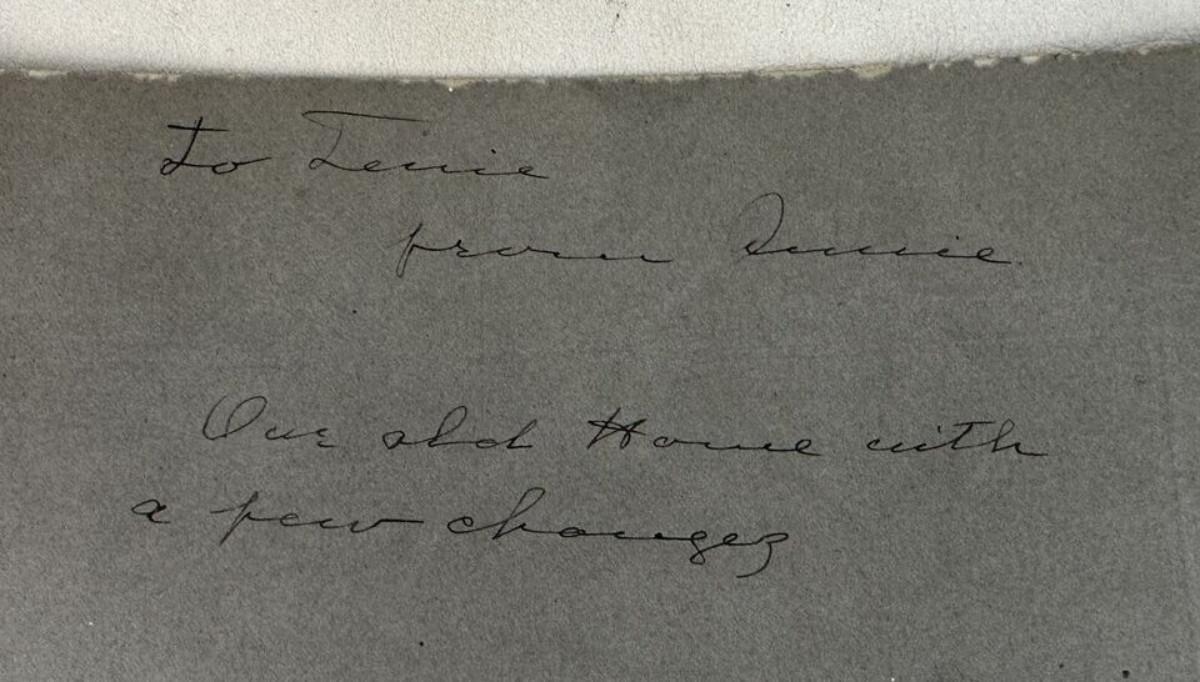 To Tenie
from Annie
Our old Home with
a few changes